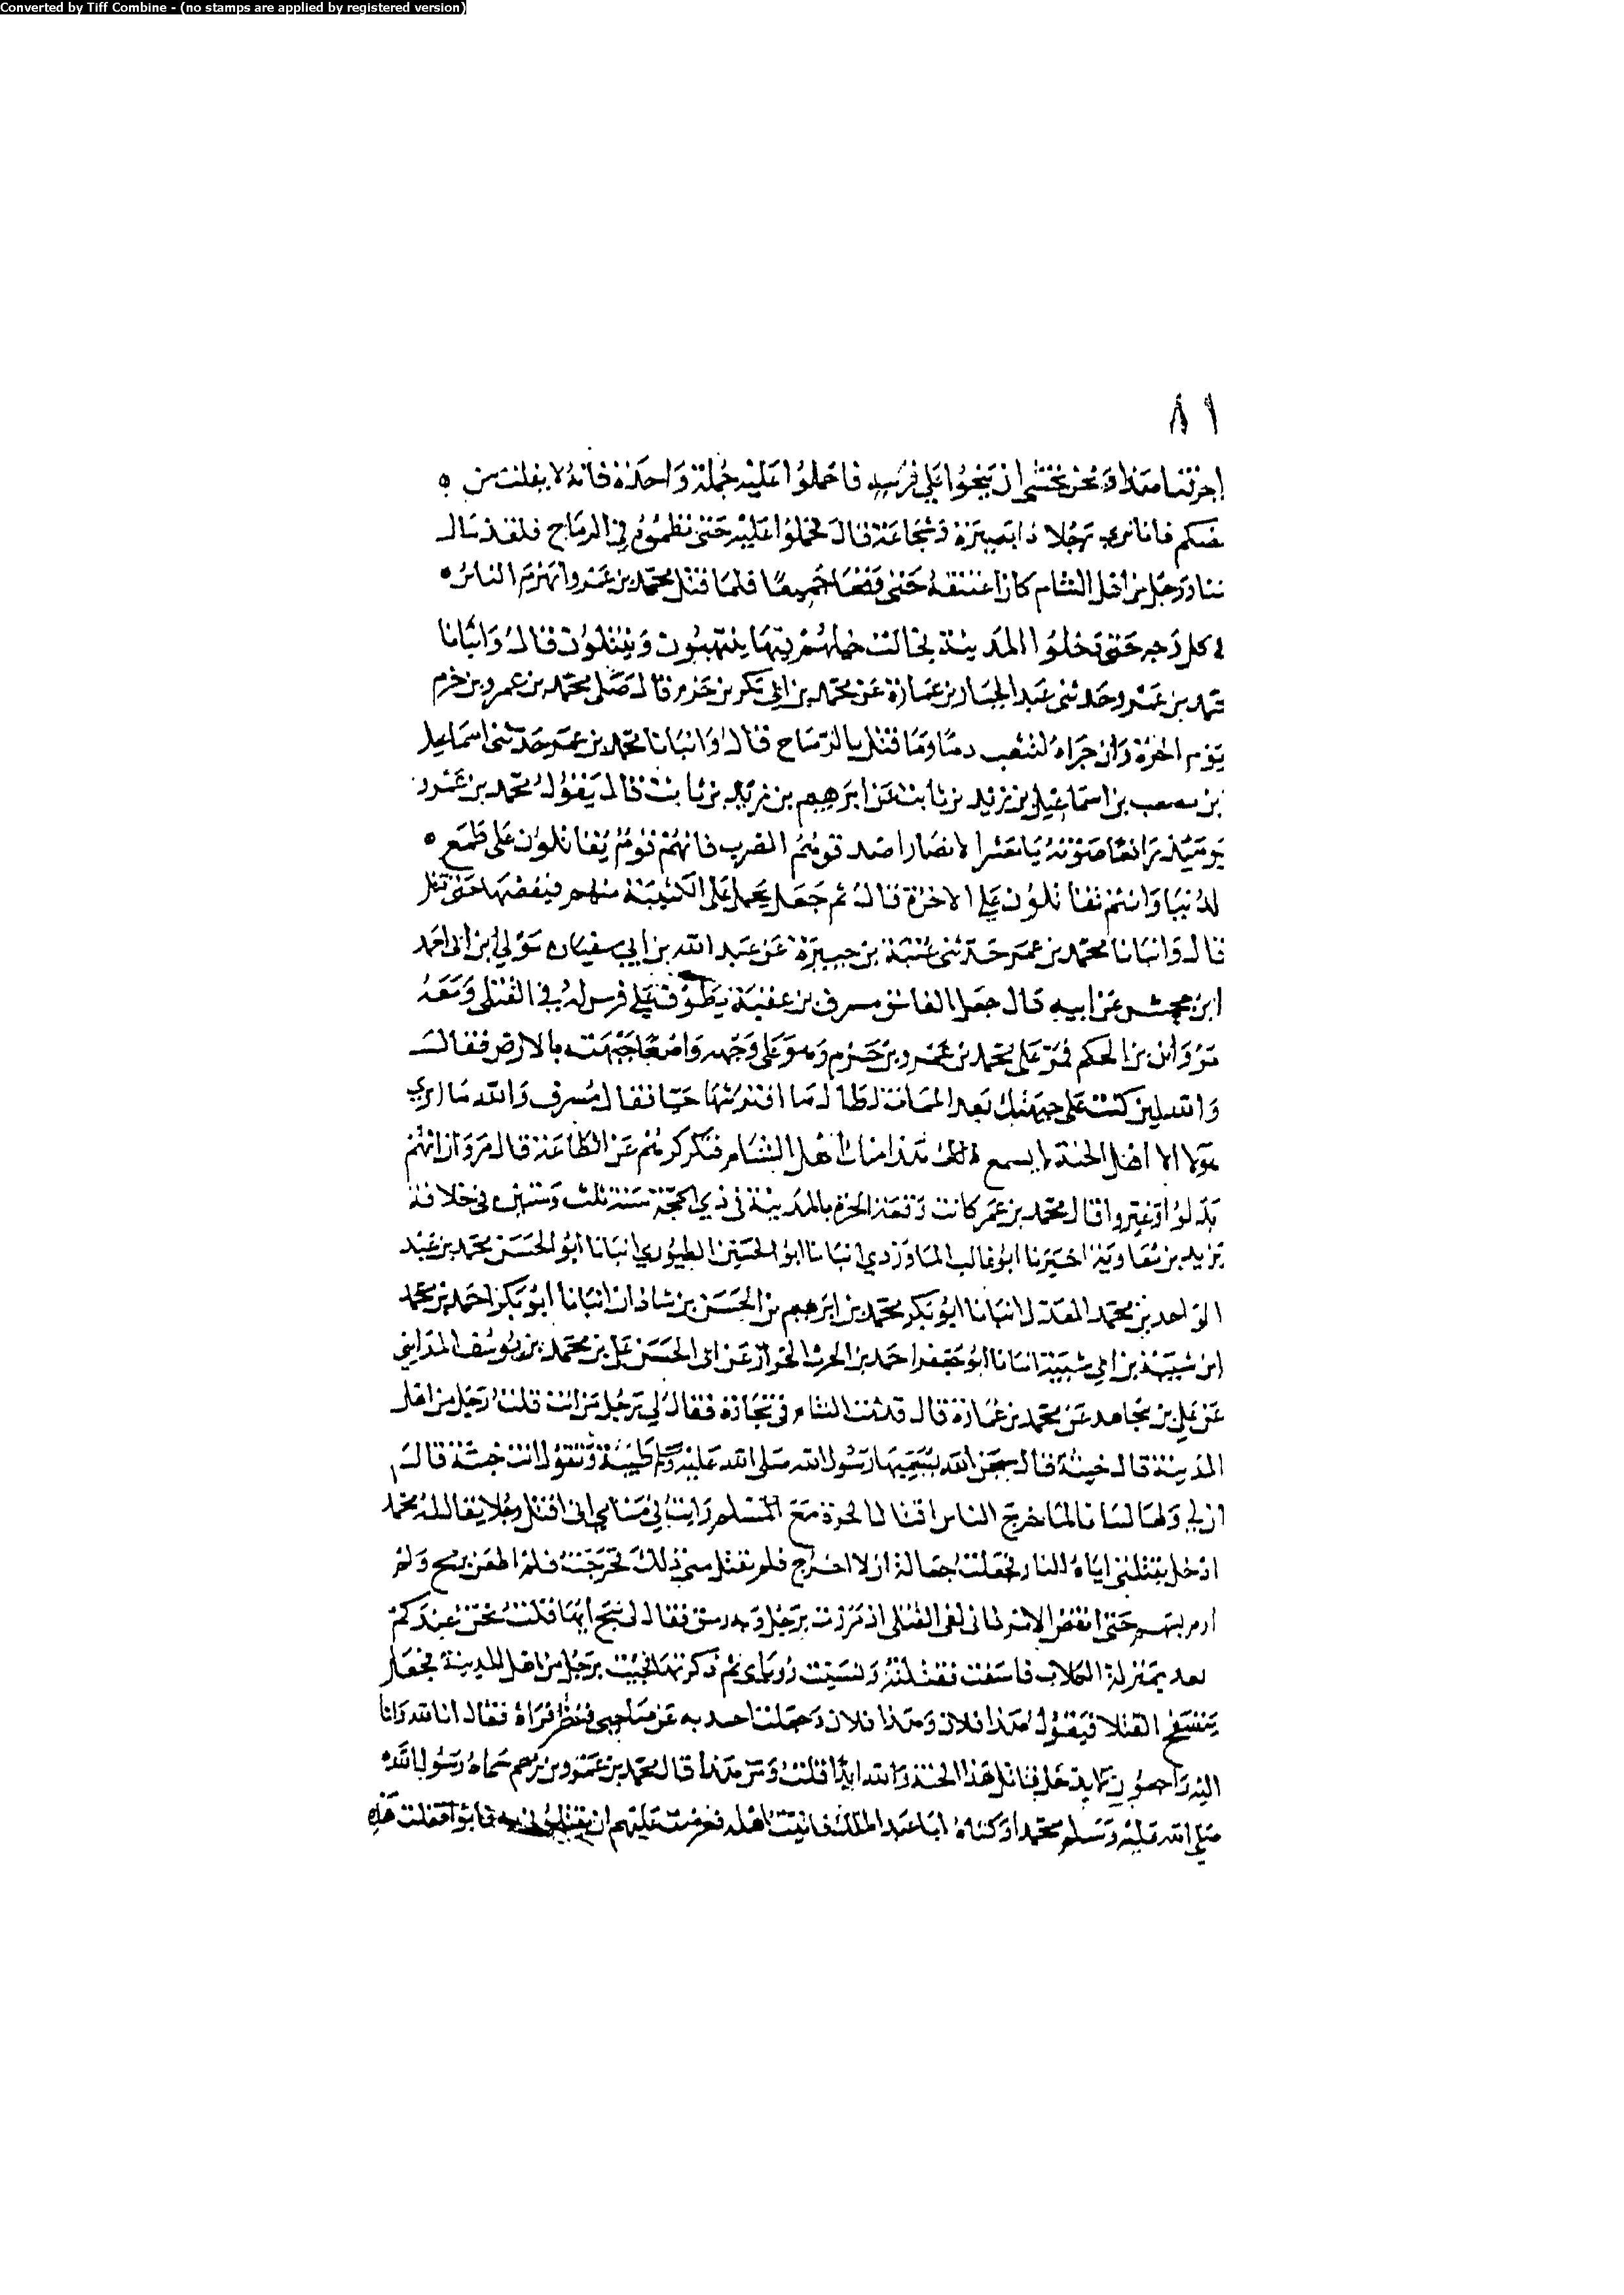 Converted by Tiff Combine - (no stamps are applied by registered version)
٨١
نحن نخشى ان ينجوا على فرسه فاحملوا عليه حملة واحدة فانه لا يفلت من
بعضكم فانا نرى رجلا ذا بصيرة وشجاعة قال فحملوا عليه حتى نظموه في الرماح فلقد مال
ورجل من اهل الشام كان اعتنقه حتى وقعا جميعا فلما قتل محمد بن عمرو انهزم الناس
في كل وجه حتى دخلوا المدينة فجالت خيلهم فيها ينتهبون ويقتلون قال وانبانا
محمد بن عمر وحدثني عبد الجبار بن عمارة عن محمد بن ابي بكر بن حزم قال صلى محمد بن عمرو بن حزم
يوم الحرة وان جراحه لتثعب دما وما قتل الا بالرماح قال وانبانا محمد بن عمر حدثني اسماعيل
بن مصعب بن اسماعيل بن زيد بن ثابت عن ابرهيم بن يزيد بن ثابت قال يقول محمد بن عمرو
يومئذ رافعا صوته يا معشر الانصار اصدقوهم الضرب فانهم قوم يقاتلون على طمع
الدنيا وانتم تقاتلون على الاخرة قال ثم جعل يحمل على الكتيبة منهم فيفضها حتى قتل
قال وانبانا محمد بن عمر حدثني عتبة بن جبيرة عن عبد الله بن ابي سفيان مولى بن ابي احمد
ابن جحش عن ابيه قال جعل الفاسق مسرف بن عقبة يطوف على فرس له في القتلى ومعه
مروان بن الحكم فمر على محمد بن عمرو بن حزم وهو على وجهه واضعا جبهته بالارض فقال
والله لين كنت على جبهتك بعد الممات لطال ما افترشتها حيا فقال مسرف والله ما ارى
هولا الا اهل الجنة لا يسمع هذا منك اهل الشام فتكركرهم عن الطاعة قال مروان انهم
بدلوا وغيروا قال محمد بن عمر كانت وقعة الحرة بالمدينة في ذي الحجة سنة ثلث وستين في خلافة
يزيد بن معاوية اخبرنا ابو غالب الماوردي انبانا ابو الحسين الطيوري انبانا ابو الحسن محمد بن عبد
الواحد بن محمد المعدل انبانا ابو بكر محمد بن ابرهيم بن الحسن بن شاذان انبانا ابو بكر احمد بن محمد
ابن شيبة بن ابي شيبة انبانا ابو جعفر احمد بن الحرث الخزاز عن ابي الحسن علي بن محمد بن يوسف المدايني
عن علي بن مجاهد عن محمد بن عمارة قال قدمت الشام في تجارة فقال لي رجل من انت قلت رجل من اهل
المدينة قال خبيثة قال سبحن الله يسميها رسول الله صلى الله عليه وسلم طيبة وتقول انت خبيثة قال
ان لي ولها لشانا لما خرج الناس لقتال الحرة مع مسلم رايت في منامي اني اقتل رجلا يقال له محمد
ادخل بقتلي اياه النار فجعلت جعالة ان لا اخرج فلم يقبل مني ذلك فخرجت فلم اطعن برمح ولم
ارم بسهم حتى انقضى الامر فاني لفي القتلى اذ مررت برجل وبه رمق فقال لي تنح ايها قلت نحن عندكم
بعد بمنزلة الكلاب فاسفت فقتلته ونسيت روياي ثم ذكرتها فجيت برجل من اهل المدينة فجعل
يتصفح القتلى فيقول هذا فلان وهذا فلان وجعلت احيد به عن صاحبي فنظر فراه فقال انا لله وانا
اليه راجعون لا يدخل قاتل هذا الجنة والله ابدا قلت ومن هذا قال محمد بن عمرو بن حزم سماه رسول الله
صلى الله عليه وسلم محمدا وكناه ابا عبد الملك فاتيت اهله فعرضت عليهم ان يقتلوني به فابوا فقلت هذه